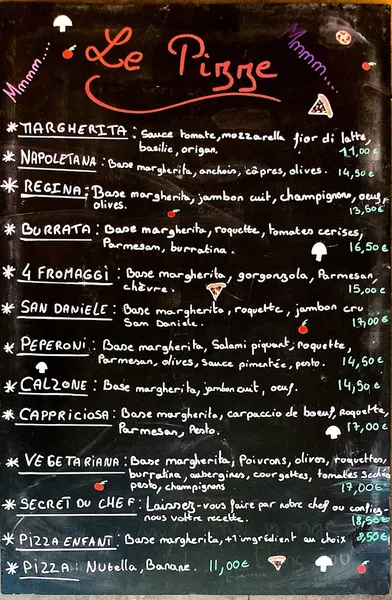 Le Pizze
Mmmm...
Mmmm...
* MARGHERITA : Sauce tomate, mozzarella fior di latte,
basilic, origan. 11,00€
* NAPOLETANA : Base margherita, anchois, câpres, olives. 14,50€
* REGINA : Base margherita, jambon cuit, champignons, oeuf,
olives. 13,50€
* BURRATA : Base margherita, roquette, tomates cerises,
Parmesan, burratina. 16,50€
* 4 FROMAGGI : Base margherita, gorgonzola, Parmesan,
chèvre. 15,00€
* SAN DANIELE : Base margherita, roquette, jambon cru
San Daniele. 17,00€
* PEPERONI : Base margherita, Salami piquant, roquette,
Parmesan, olives, sauce pimentée, pesto. 14,50€
* CALZONE : Base margherita, jambon cuit, oeuf. 14,50€
* CAPPRICIOSA : Base margherita, carpaccio de boeuf, Roquette,
Parmesan, Pesto. 17,00€
* VEGETARIANA : Base margherita, Poivrons, olives, roquettes,
burratina, aubergines, courgettes, tomates séchées
pesto, champignons 17,00€
* SECRET DU CHEF : Laissez-vous faire par notre chef ou confiez-
nous votre recette. 18,50€
* PIZZA ENFANT : Base margherita, +1 ingrédient au choix 8,50€
* PIZZA : Nutella, Banane. 11,00€